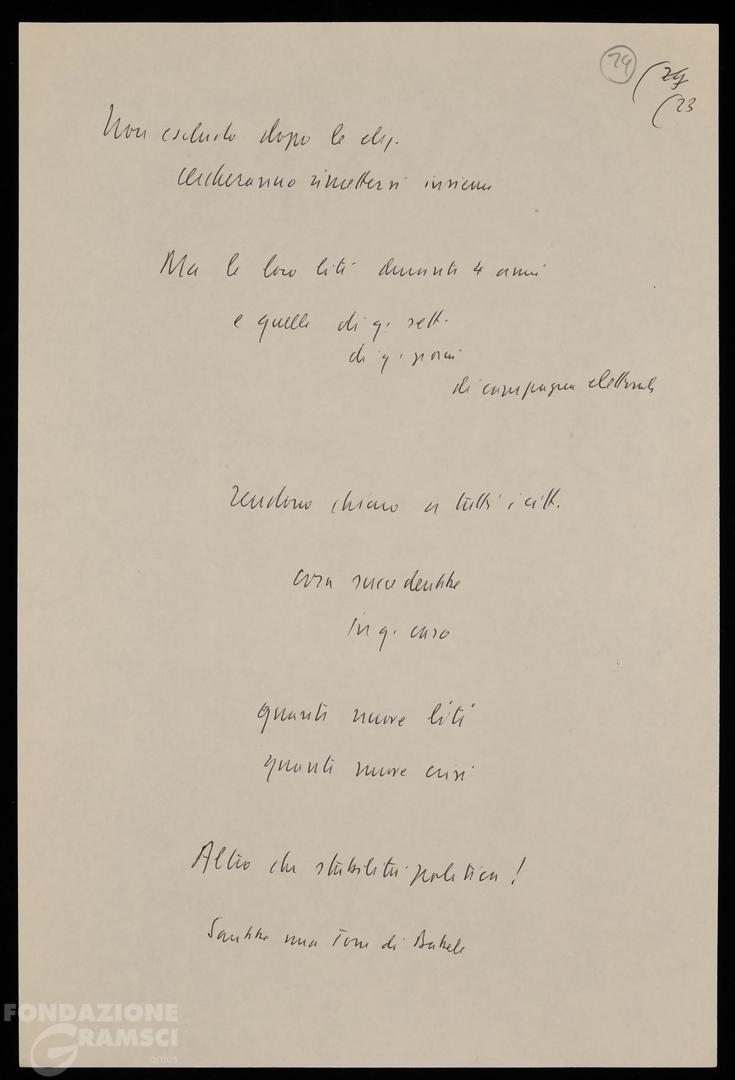 24 (24
(23
Non escludo dopo le elez.
cercheranno rimettersi insieme
Ma le loro liti durante 4 anni
e quelle di q. sett.
di q. giorni
di campagna elettorale
rendono chiaro a tutti i citt.
cosa succederebbe
in q. caso
quante nuove liti
quante nuove crisi
Altro che stabilità politica!
Sarebbe una Torre di Babele
FONDAZIONE
GRAMSCI
onlus